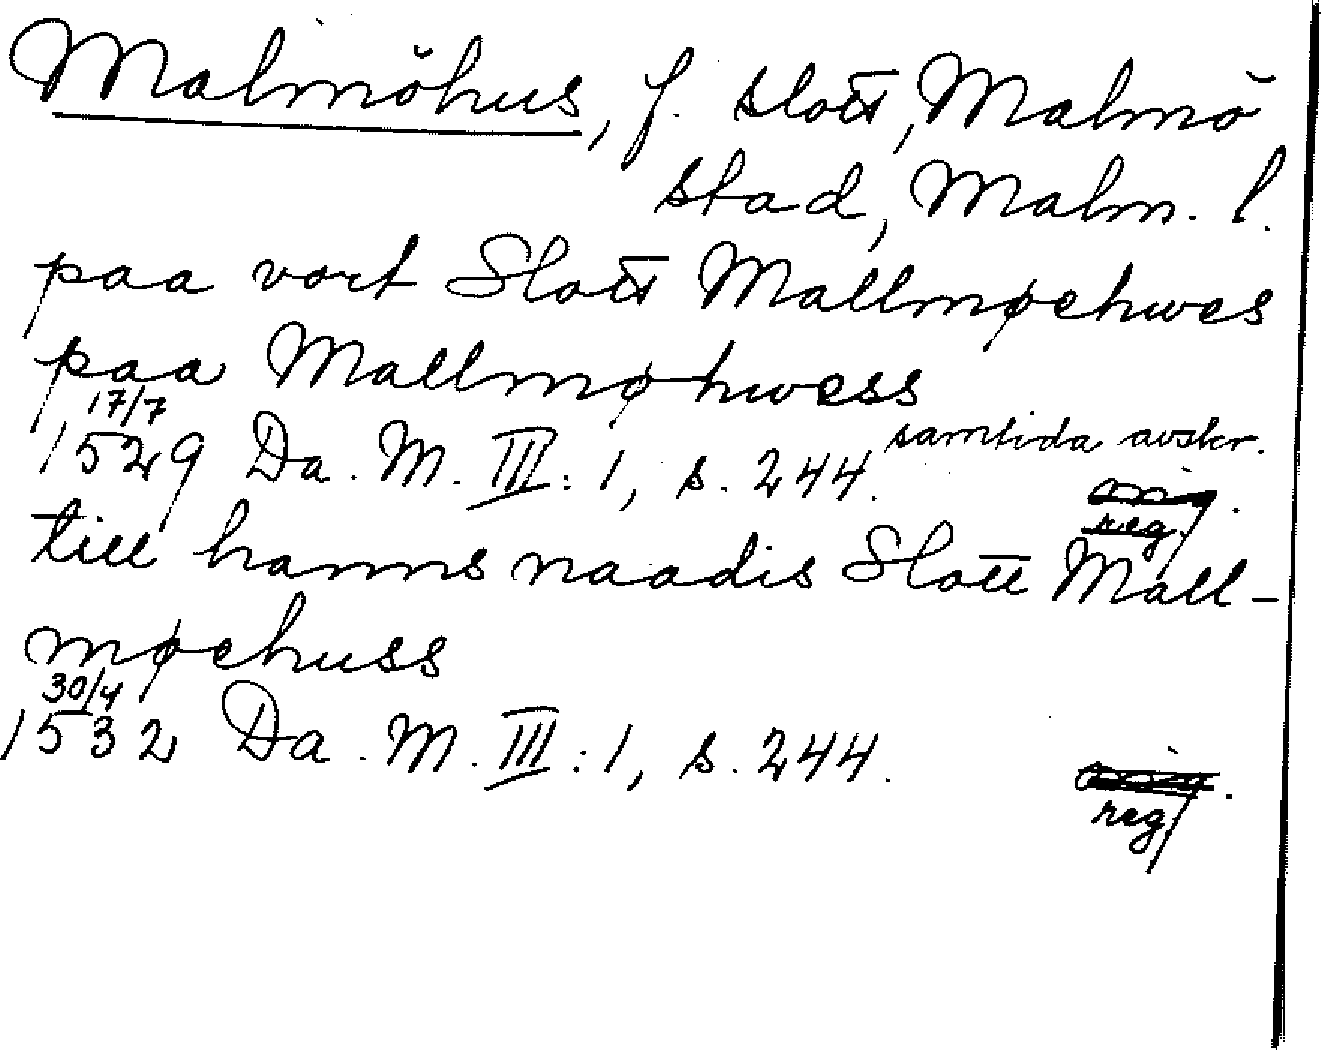 Malmöhus, f. slott, Malmö
stad, Malm. l.
paa vort Slott Mallmøehwes
paa Mallmøhwess
17/7
1529 Da. M. III: 1, s. 244. samtida avskr.
orig.
reg.
till hanns naadis Slott Mall-
møehuss
30/4
1532 Da. M. III: 1, s. 244.
orig.
reg